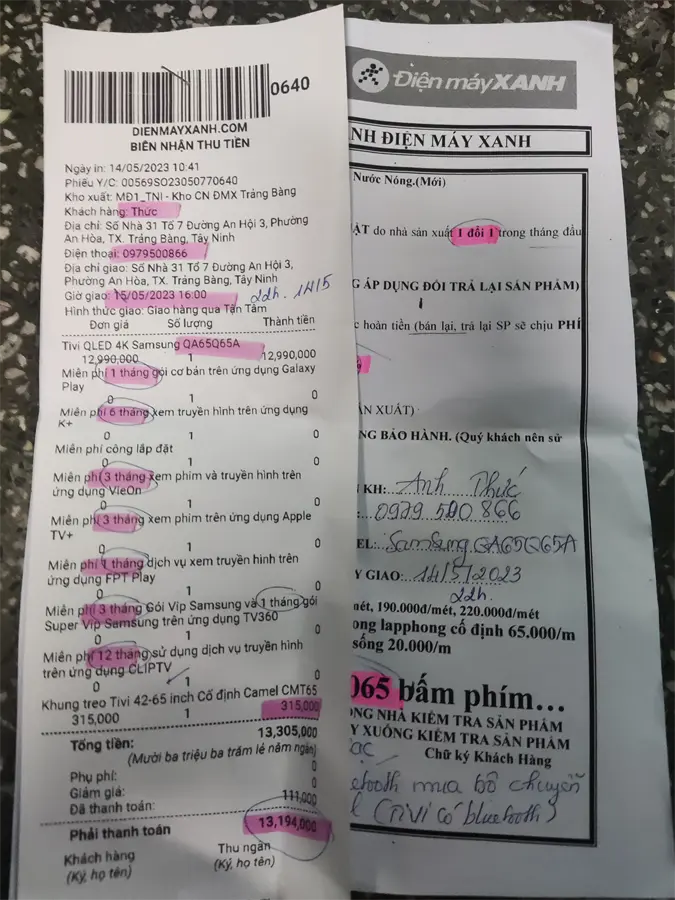 0640
DIENMAYXANH.COM
BIÊN NHẬN THU TIỀN
Ngày in: 14/05/2023 10:41
Phiếu Y/C: 00569SO23050770640
Kho xuất: MĐ1_TNI - Kho CN ĐMX Trảng Bàng
Khách hàng: Thức
Địa chỉ: Số Nhà 31 Tổ 7 Đường An Hội 3, Phường
An Hòa, TX. Trảng Bàng, Tây Ninh
Điện thoại: 0979500866
Địa chỉ giao: Số Nhà 31 Tổ 7 Đường An Hội 3,
Phường An Hòa, TX. Trảng Bàng, Tây Ninh
Giờ giao: 15/05/2023 16:00 22h. 14/5
Hình thức giao: Giao hàng qua Tận Tâm
Đơn giá Số lượng Thành tiền
Tivi QLED 4K Samsung QA65Q65A
12,990,000 1 12,990,000
Miễn phí 1 tháng gói cơ bản trên ứng dụng Galaxy
Play
0 1 0
Miễn phí 6 tháng xem truyền hình trên ứng dụng
K+
0 1 0
Miễn phí công lắp đặt
0 1 0
Miễn phí 3 tháng xem phim và truyền hình trên
ứng dụng VieOn
0 1 0
Miễn phí 3 tháng xem phim trên ứng dụng Apple
TV+
0 1 0
Miễn phí 1 tháng dịch vụ xem truyền hình trên
ứng dụng FPT Play
0 1 0
Miễn phí 3 tháng Gói Vip Samsung và 1 tháng gói
Super Vip Samsung trên ứng dụng TV360
0 1 0
Miễn phí 12 tháng sử dụng dịch vụ truyền hình
trên ứng dụng CLIPTV
0 1 0
Khung treo Tivi 42-65 inch Cố định Camel CMT65
315,000 1 315,000
Tổng tiền: 13,305,000
(Mười ba triệu ba trăm lẻ năm ngàn)
Phụ phí: 0
Giảm giá: 0
Đã thanh toán: 111,000
Phải thanh toán 13,194,000
Khách hàng Thu ngân
(Ký, họ tên) (Ký, họ tên)
Điện máy XANH
NH ĐIỆN MÁY XANH
Nước Nóng.(Mới)
ẬT do nhà sản xuất 1 đổi 1 trong tháng đầu
G ÁP DỤNG ĐỔI TRẢ LẠI SẢN PHẨM)
c hoàn tiền (bán lại, trả lại SP sẽ chịu PHÍ
ẢN XUẤT)
NG BẢO HÀNH. (Quý khách nên sử
KH: Anh Thức
: 0979 500 866
EL: Samsung QA65Q65A
Y GIAO: 14/5/2023
22h.
mét, 190.000đ/mét, 220.000đ/mét
ong lapphong cố định 65.000/m
sống 20.000/m
065 bấm phím...
ỘNG NHÀ KIỂM TRA SẢN PHẨM
Y XUỐNG KIỂM TRA SẢN PHẨM
Chữ ký Khách Hàng
etooth mua bộ chuyển
(TiVi có bluetooth)